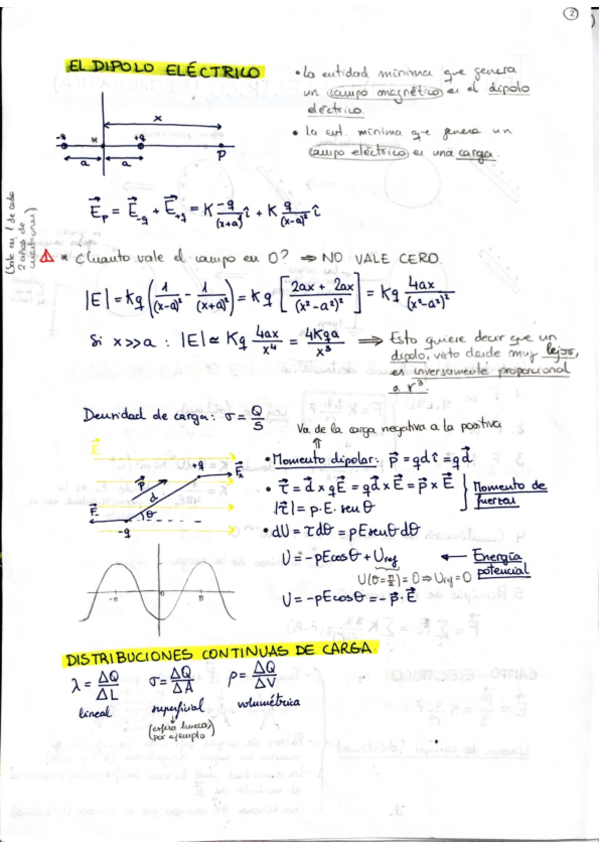 2
EL DIPOLO ELÉCTRICO
• La entidad mínima que genera
un campo magnético es el dipolo
eléctrico.
• la ent. mínima que genera un
campo eléctrico es una carga.
x
-q +q
a a P
E⃗p = E⃗-q + E⃗+q = K -q/(x+a)² î + K q/(x-a)² î
(Sale en 1 de cada
2 años de
⚠ * ¿Cuanto vale el campo en O? ⇒ NO VALE CERO.
|E| = Kq (1/(x-a)² - 1/(x+a)²) = Kq [2ax + 2ax/(x²-a²)²] = Kq 4ax/(x²-a²)²
Si x>>a : |E| ≃ Kq 4ax/x⁴ = 4Kqa/x³ ⇒ Esto quiere decir que un
dipolo, visto desde muy lejos,
es inversamente proporcional
a r³.
Densidad de carga: σ = Q/S
Va de la carga negativa a la positiva
⇑
• Momento dipolar: p⃗ = qd î = qd⃗
• τ⃗ = d⃗ x qE⃗ = qd⃗ x E⃗ = p⃗ x E⃗
|τ⃗| = p·E·senθ
Momento de
fuerzas
• dU = τdθ = pEsenθdθ
U = -pEcosθ + Uref ← Energía
potencial
U(θ=π/2) = 0 ⇒ Uref = 0
U = -pEcosθ = -p⃗·E⃗
E⃗
+q
p⃗
d
θ
-q
-π 0 π
DISTRIBUCIONES CONTINUAS DE CARGA.
λ = ΔQ/ΔL σ = ΔQ/ΔA ρ = ΔQ/ΔV
lineal superficial volumétrica
(esfera hueca)
por ejemplo